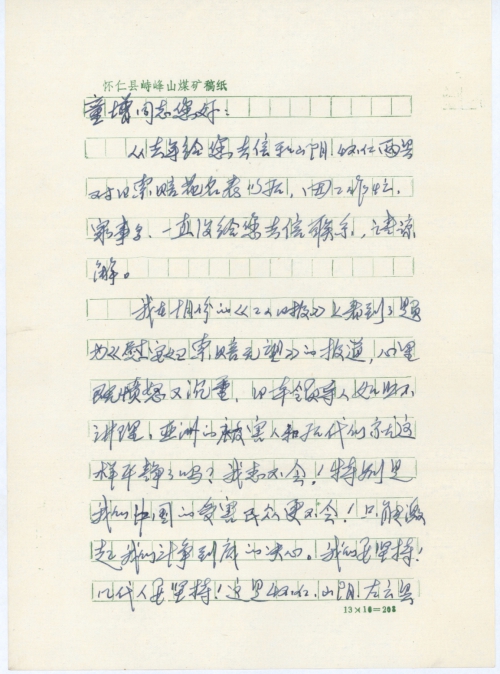 怀仁县峙峰山煤矿稿纸
童增同志您好：
从去年给您去信和山阴 怀仁两县
对日索赔花名表以后，因工作忙、
家事多，一直没给您去信联系，请谅
解。
我在十月份的《工人日报》上看到了题
为《慰安妇索赔无望》的报道，心里
既愤怒又沉重，日本领导人如此不
讲理，亚洲的被害人和后代们就这
样平静了吗？我想不会！特别是
我们中国的受害民众更不会！只能激
起我们斗争到底的决心。我们要坚持！
几代人要坚持！这里怀仁、山阴、左云县
13×16=208